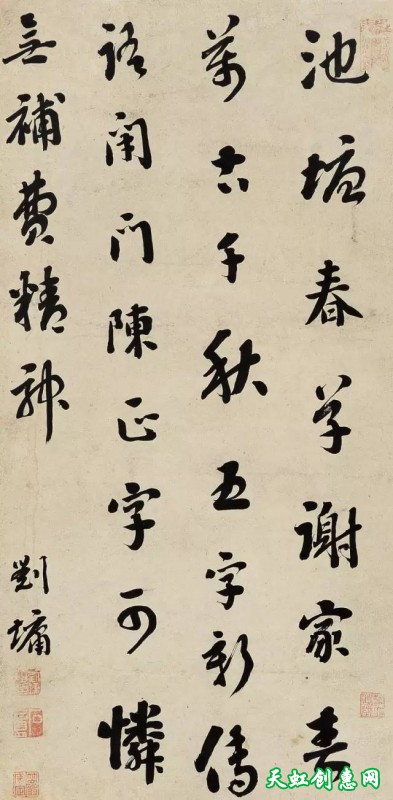 池塘春草謝家春
萬古千秋五字新傳
語閉門陳正字可憐
無補費精神
劉墉
天虹创意网